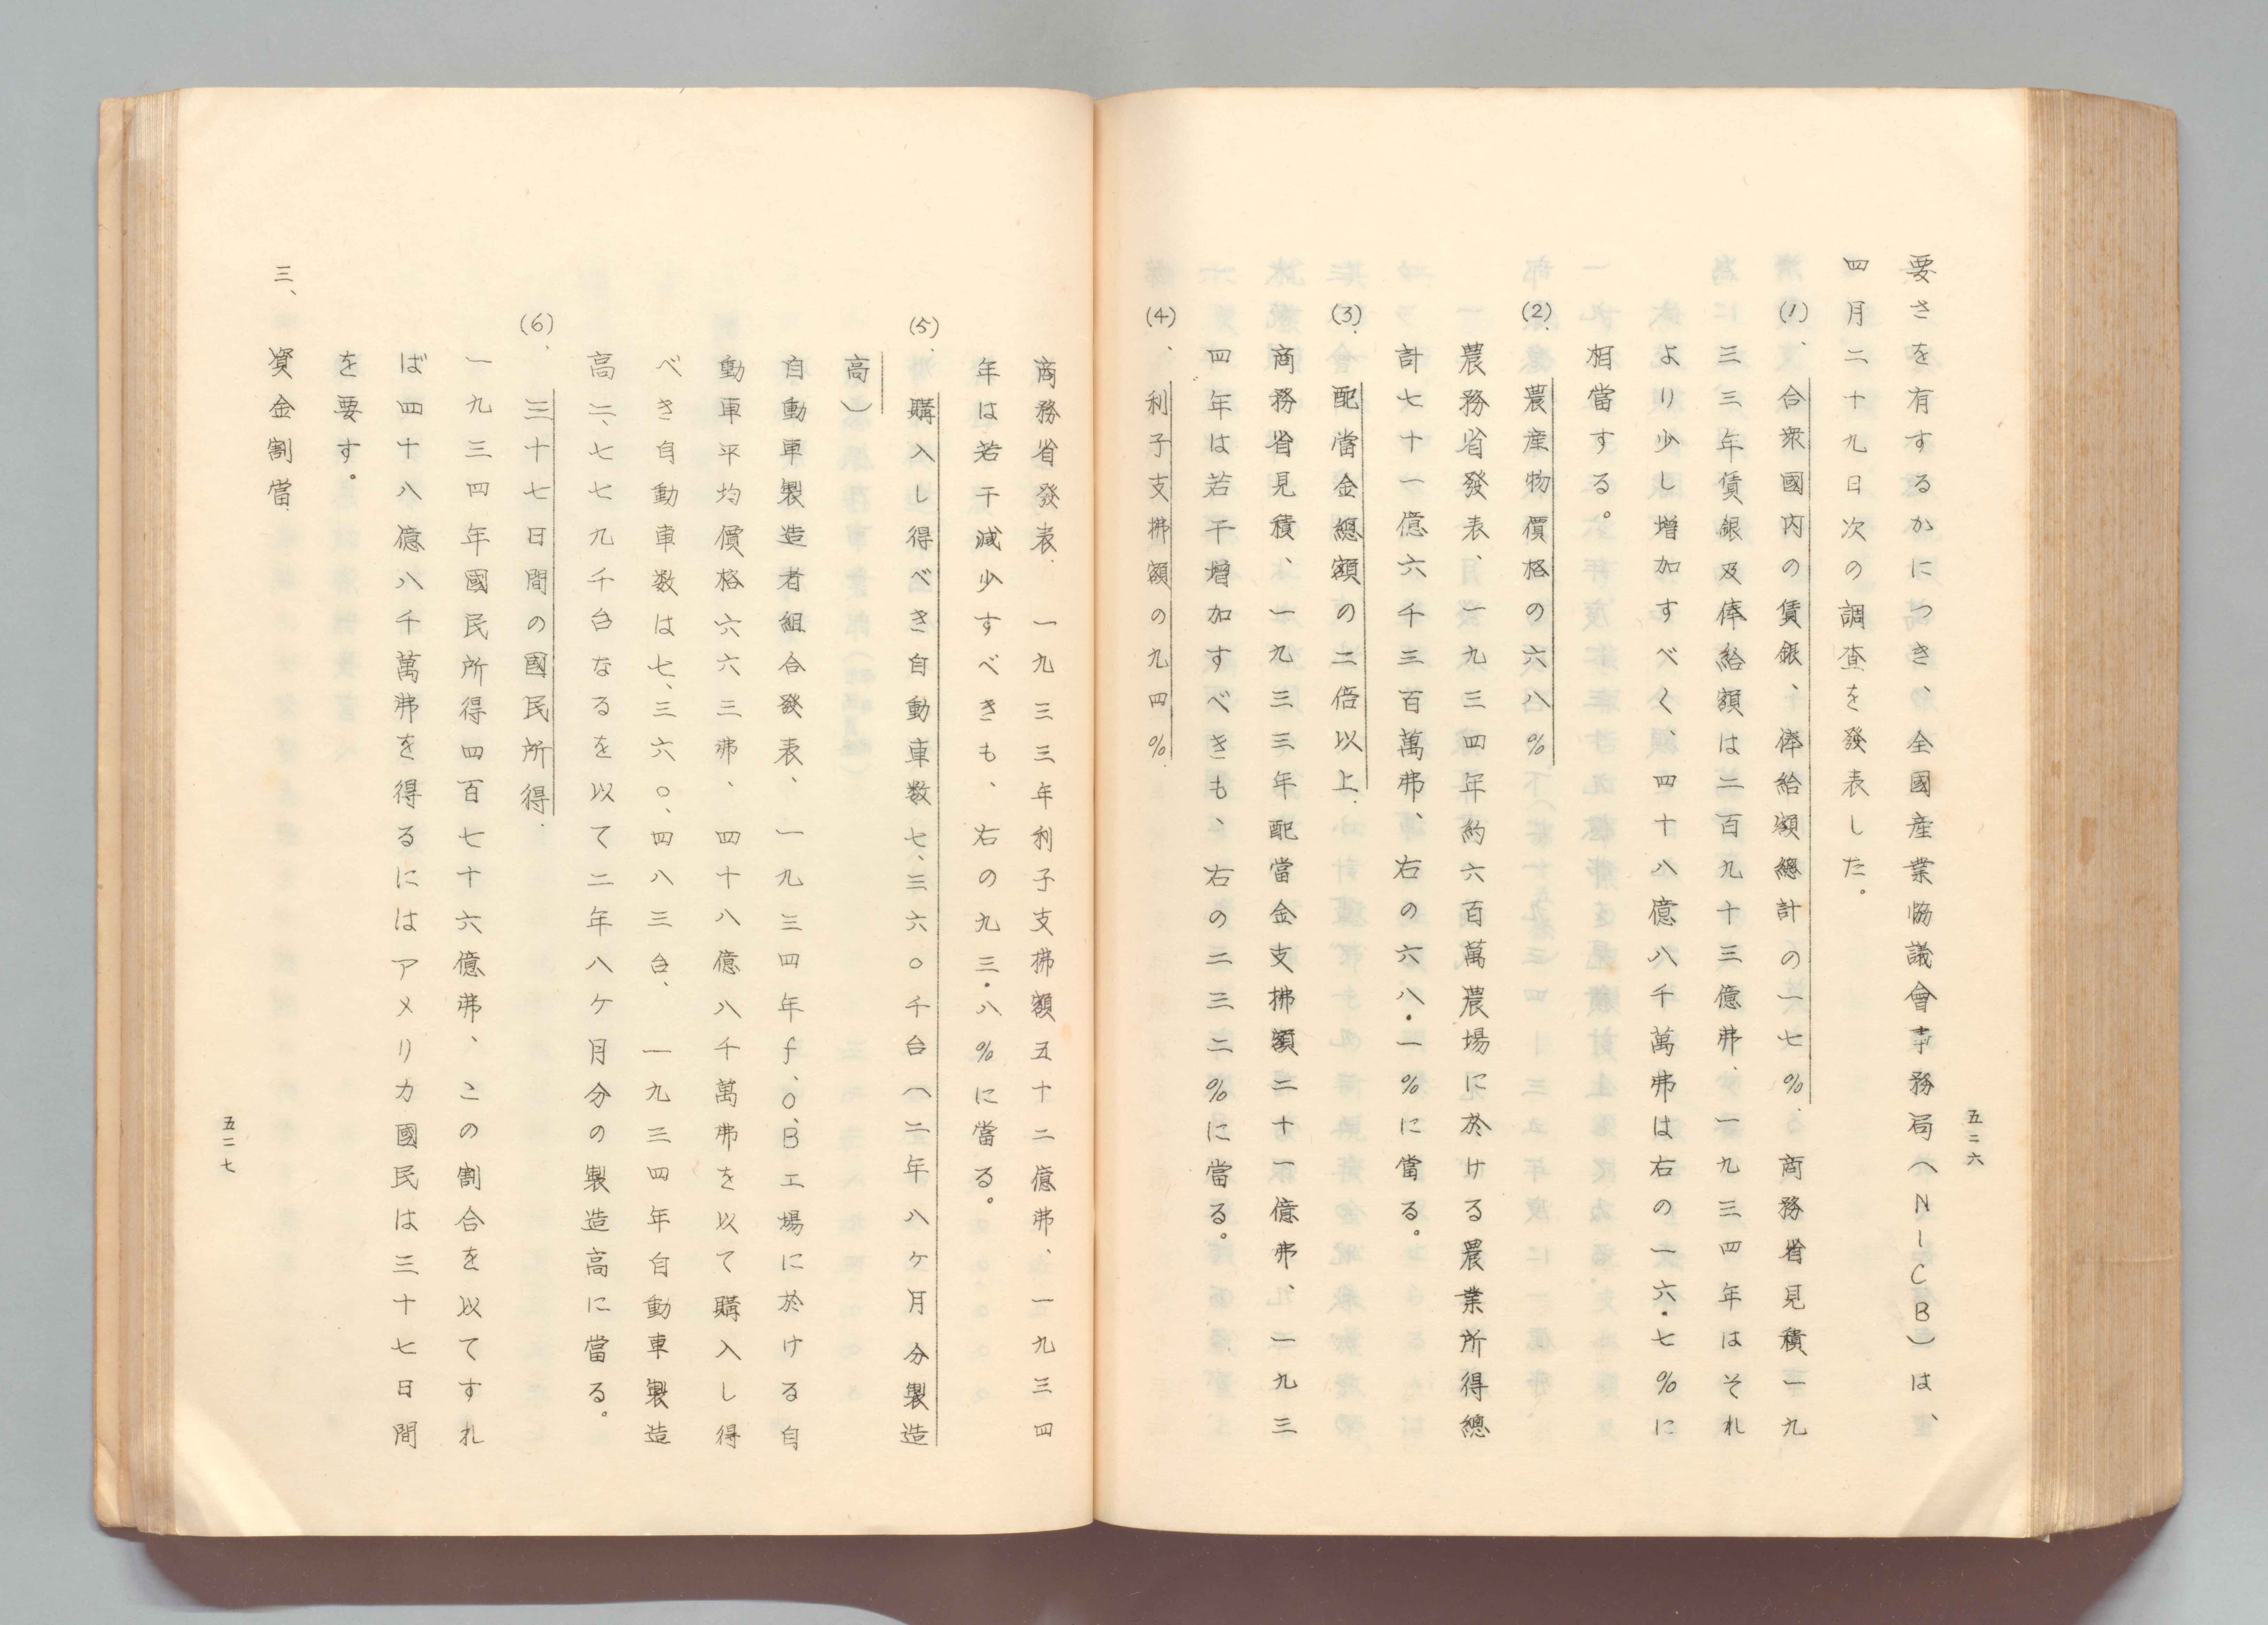 五二六
要さを有するかにつき、全國産業協議會事務局（NICB）は、
四月二十九日次の調査を發表した。
(1)、合衆國内の賃銀、俸給額總計の一七％. 商務省見積一九
三三年賃銀及俸給額は二百九十三億弗、一九三四年はそれ
より少し増加すべく、四十八億八千萬弗は右の一六・七％に
相當する。
(2).農産物價格の六八％
農務省發表、一九三四年約六百萬農場に於ける農業所得總
計七十一億六千三百萬弗、右の六八・一％に當る。
(3).配當金總額の二倍以上.
商務省見積、一九三三年配當金支拂額二十一億弗、一九三
四年は若干増加すべきも、右の二三二％に當る。
(4)、利子支拂額の九四％.
商務省發表、一九三三年利子支拂額五十二億弗、一九三四
年は若干減少すべきも、右の九三・八％に當る。
(5).購入し得べき自動車数七、三六〇千台（二年八ケ月分製造
高）
自動車製造者組合發表、一九三四年f、O、B工場に於ける自
動車平均價格六六三弗、四十八億八千萬弗を以て購入し得
べき自動車数は七、三六〇、四八三台、一九三四年自動車製造
高二、七七九千台なるを以て二年八ケ月分の製造高に當る。
(6)、三十七日間の國民所得.
一九三四年國民所得四百七十六億弗、この割合を以てすれ
ば四十八億八千萬弗を得るにはアメリカ國民は三十七日間
を要す。
三、資金割當.
五二七